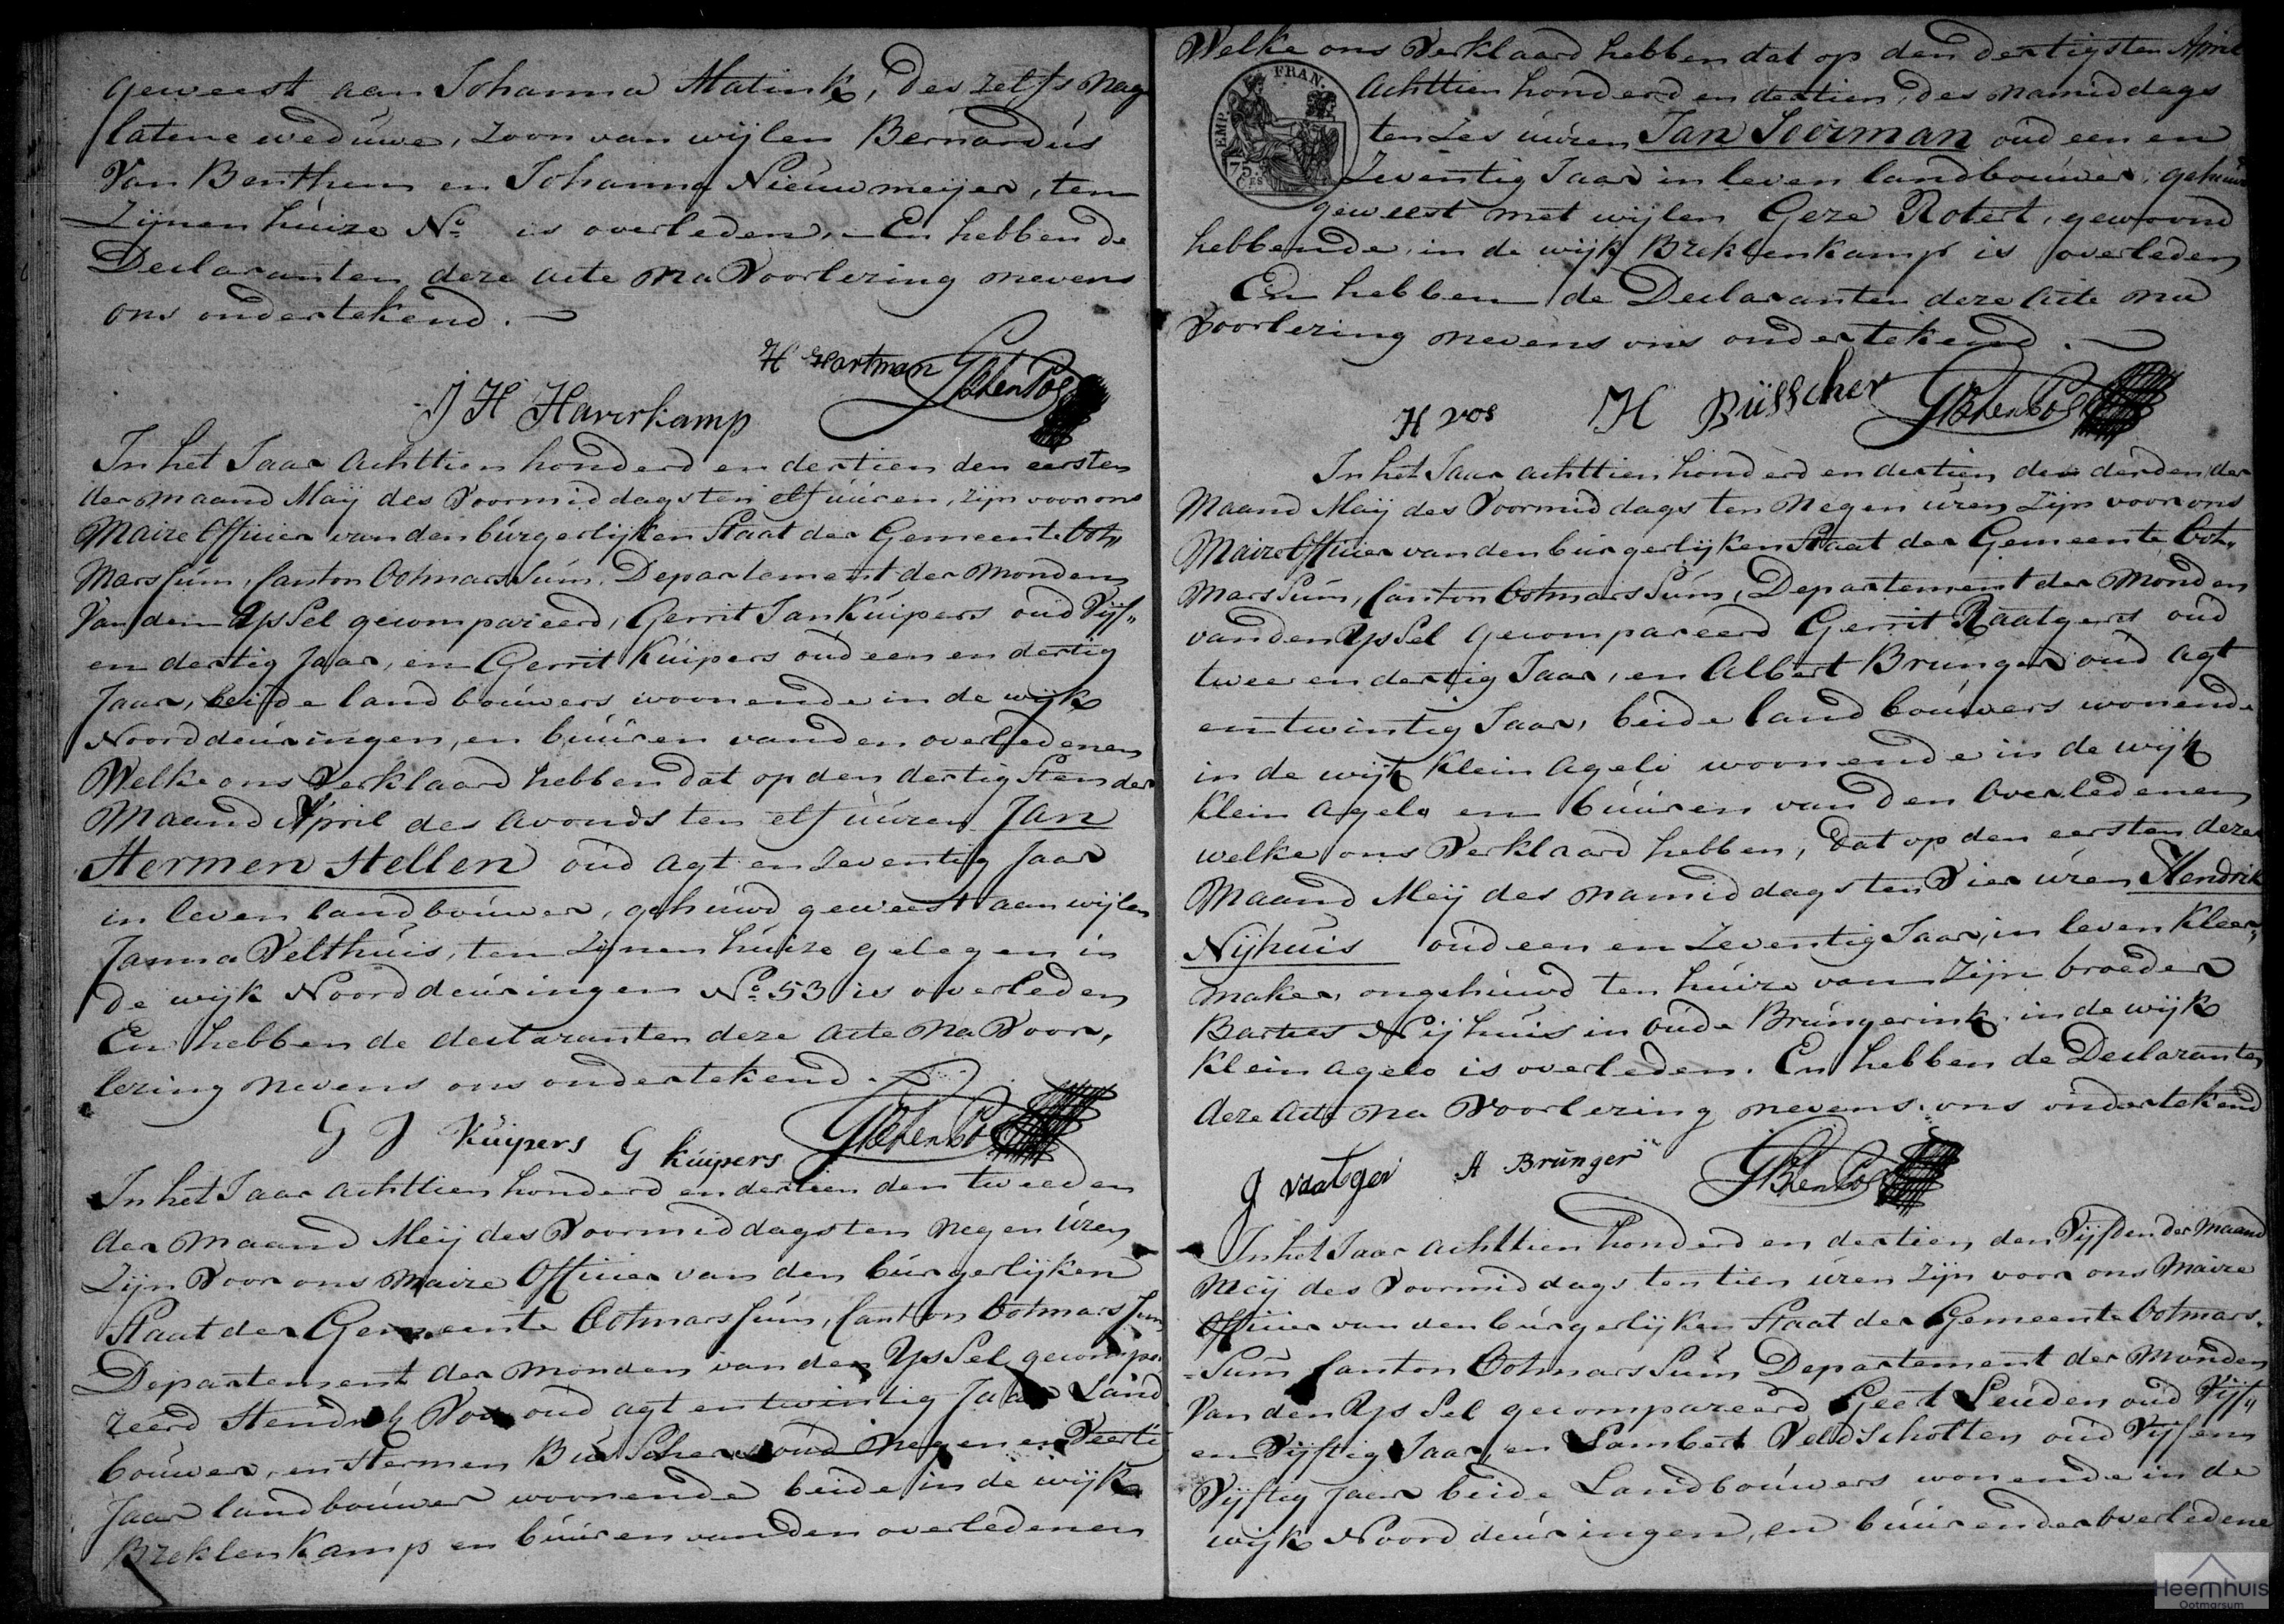 geweest aan Johanna Matink, des zelfs nag
latene weduwe, zoon van wijlen Bernardús
Van Benthem en Johanna Nieúwmeijer, ten
Zijnen húize No. is overleden. En hebben de
Declaranten deze acte na Voorlezing nevens
ons ondertekend.
H Hartman
J H Haverkamp
In het Jaar Achttien honderd en dertien den eersten
der maand Maij des Voormiddags ten elf úúren, zijn voor ons
Maire Officier van den búrgerlijken Staat der Gemeente Oot„
Marssúm, Canton Ootmarssúm, Departement der Monden
Van den Yssel gecompareerd, Gerrit Jan Kúipers oúd Vijf„
en dertig Jaar, en Gerrit Kúipers oúd een en dertig
Jaar, beide landboúwers woonende in de wijk
Noorddeúringen, en búúren van den overledenen
Welke ons Verklaard hebben dat op den dertigsten der
Maand April des avonds ten elf úúren Jan
Hermen Hellen oúd agt en Zeventig Jaar
in leven landboúwer, gehúwd geweest aan wijlen
Janna Velthúis, ten zijnen húize gelegen in
de wijk Noorddeúringen No. 53 is overleden
En hebben de declaranten deze acte Na Voor,
lezing nevens ons ondertekend.
G J Kúijpers G kúijpers
In het Jaar achttien honderd en dertien den tweeden
der Maand Meij des Voormiddags ten Negen Úren
Zijn Voor ons Maire Officier van den búrgerlijken
Staat der Gemeente Ootmarssúm, Canton Ootmarssúm
Departement der Monden van den Yssel gecompa
reerd Hendrik Vos oúd agt en twintig Jaar Land
boúwer, en Hermen Büsscher oúd Negen en Veerti
Jaar landboúwer woonende beide in de wijk
Breklenkamp en búúren van den overledenen
Welke ons Verklaard hebben dat op den dertigsten April
EMP. FRAN.
75
CES
Achttien honderd en dertien, des Namiddags
ten Zes úúren Jan Soerman oúd een en
Zeventig Jaar in leven landboúwer, gehúwd
geweest met wijlen Geze Rotert, gewoond
hebbende in de wijk Breklenkamp is overleden
En hebben de Declaranten deze Acte na
Voorlezing nevens ons ondertekend.
H vos H Büsscher
In het Jaar achttien honderd en dertien den derden der
Maand Maij des Voormiddags ten Negen úren Zijn voor ons
Maire Officier van den búrgerlijken Staat der Gemeente Oot„
Marssúm, Canton Ootmarssúm, Departement der Monden
van den Yssel gecompareerd Gerrit Raatgers oúd
twee en dertig Jaar, en Albert Brunger oúd agt
en twintig Jaar, beide landboúwers wonende
in de wijk Klein Agelo woonende in de wijk
Klein Agelo en búúren van den Overledenen
welke ons Verklaard hebben, dat op den eersten dezer
Maand Meij des Namiddags ten Vier úren Hendrik
Nijhúis oúd een en Zeventig Jaar, in leven Kleer„
maker, ongehúwd ten húize van Zijn broeder
Nijhúis in oúde Brúngerink in de wijk
Klein Agelo is overleden. En hebben de Declaranten
deze Acte na Voorlezing nevens ons óndertekend
A Brünger
In het Jaar achttien honderd en dertien den Vijfden der Maand
Meij des Voormiddags ten tien úren zijn voor ons Maire
Officier van den búrgerlijken Staat der Gemeente Ootmars„
súm Canton Ootmarssúm Departement der Monden
Van den Yssel gecompareerd Geert Leúden oúd Vijf„
en Vijftig Jaar, en Lambert Veldscholten oúd Vijf en
Vijftig Jaar beide Landboúwers wonende in de
wijk Noorddeúringen, en búúren der Overledene
Heemhuis
Ootmarsum